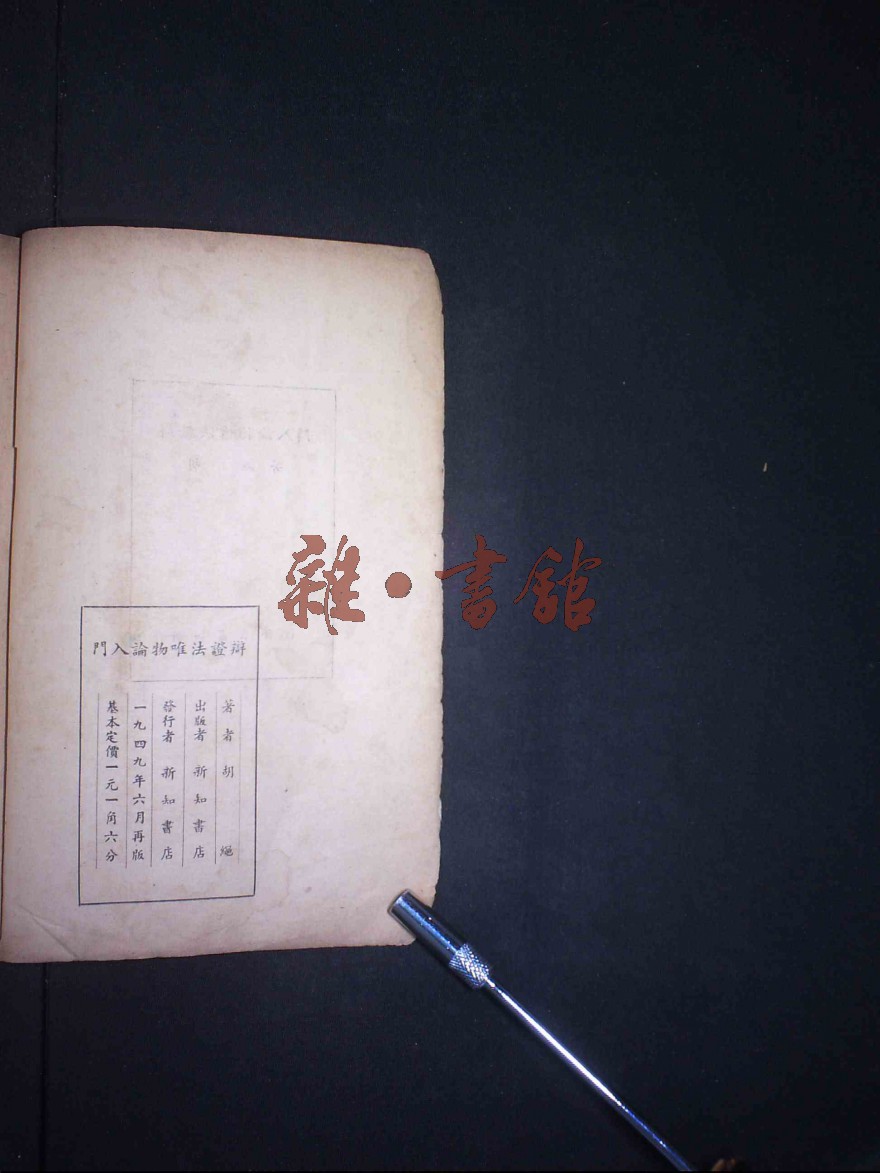 辯證法唯物論入門
著者 胡繩
出版者 新知書店
發行者 新知書店
一九四九年六月再版
基本定價一元一角六分
雜·書館